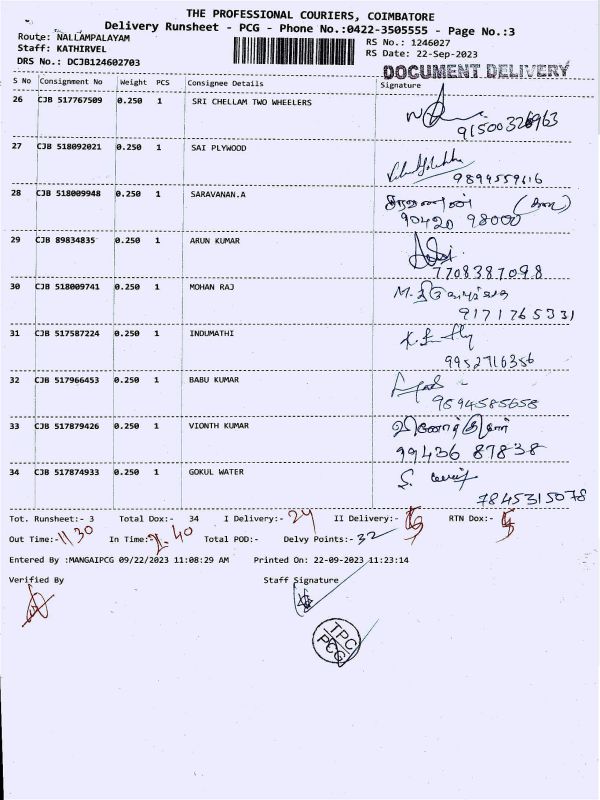 THE PROFESSIONAL COURIERS, COIMBATORE
Delivery Runsheet - PCG - Phone No.:0422-3505555 - Page No.:3
Route: NALLAMPALAYAM
RS No.: 1246027
Staff: KATHIRVEL
RS Date: 22-Sep-2023
DRS No.: DCJB124602703
DOCUMENT DELIVERY
S No Consignment No Weight PCS Consignee Details Signature
26 CJB 517767509 0.250 1 SRI CHELLAM TWO WHEELERS
27 CJB 518092021 0.250 1 SAI PLYWOOD
9894559616
28 CJB 518009948 0.250 1 SARAVANAN.A சரவணன்
90420 98000
29 CJB 89834835 0.250 1 ARUN KUMAR
7708387098
30 CJB 518009741 0.250 1 MOHAN RAJ
9171765331
31 CJB 517587224 0.250 1 INDUMATHI
9952716356
32 CJB 517966453 0.250 1 BABU KUMAR
9894585658
33 CJB 517879426 0.250 1 VIONTH KUMAR வினோத்குமார்
99436 87838
34 CJB 517874933 0.250 1 GOKUL WATER
7845315078
Tot. Runsheet:- 3 Total Dox:- 34 I Delivery:- 29 II Delivery:- RTN Dox:-
Out Time:- 11 30 In Time:- 2.40 Total POD:- Delvy Points:- 32
Entered By :MANGAIPCG 09/22/2023 11:08:29 AM Printed On: 22-09-2023 11:23:14
Verified By Staff Signature
TPC
PCG